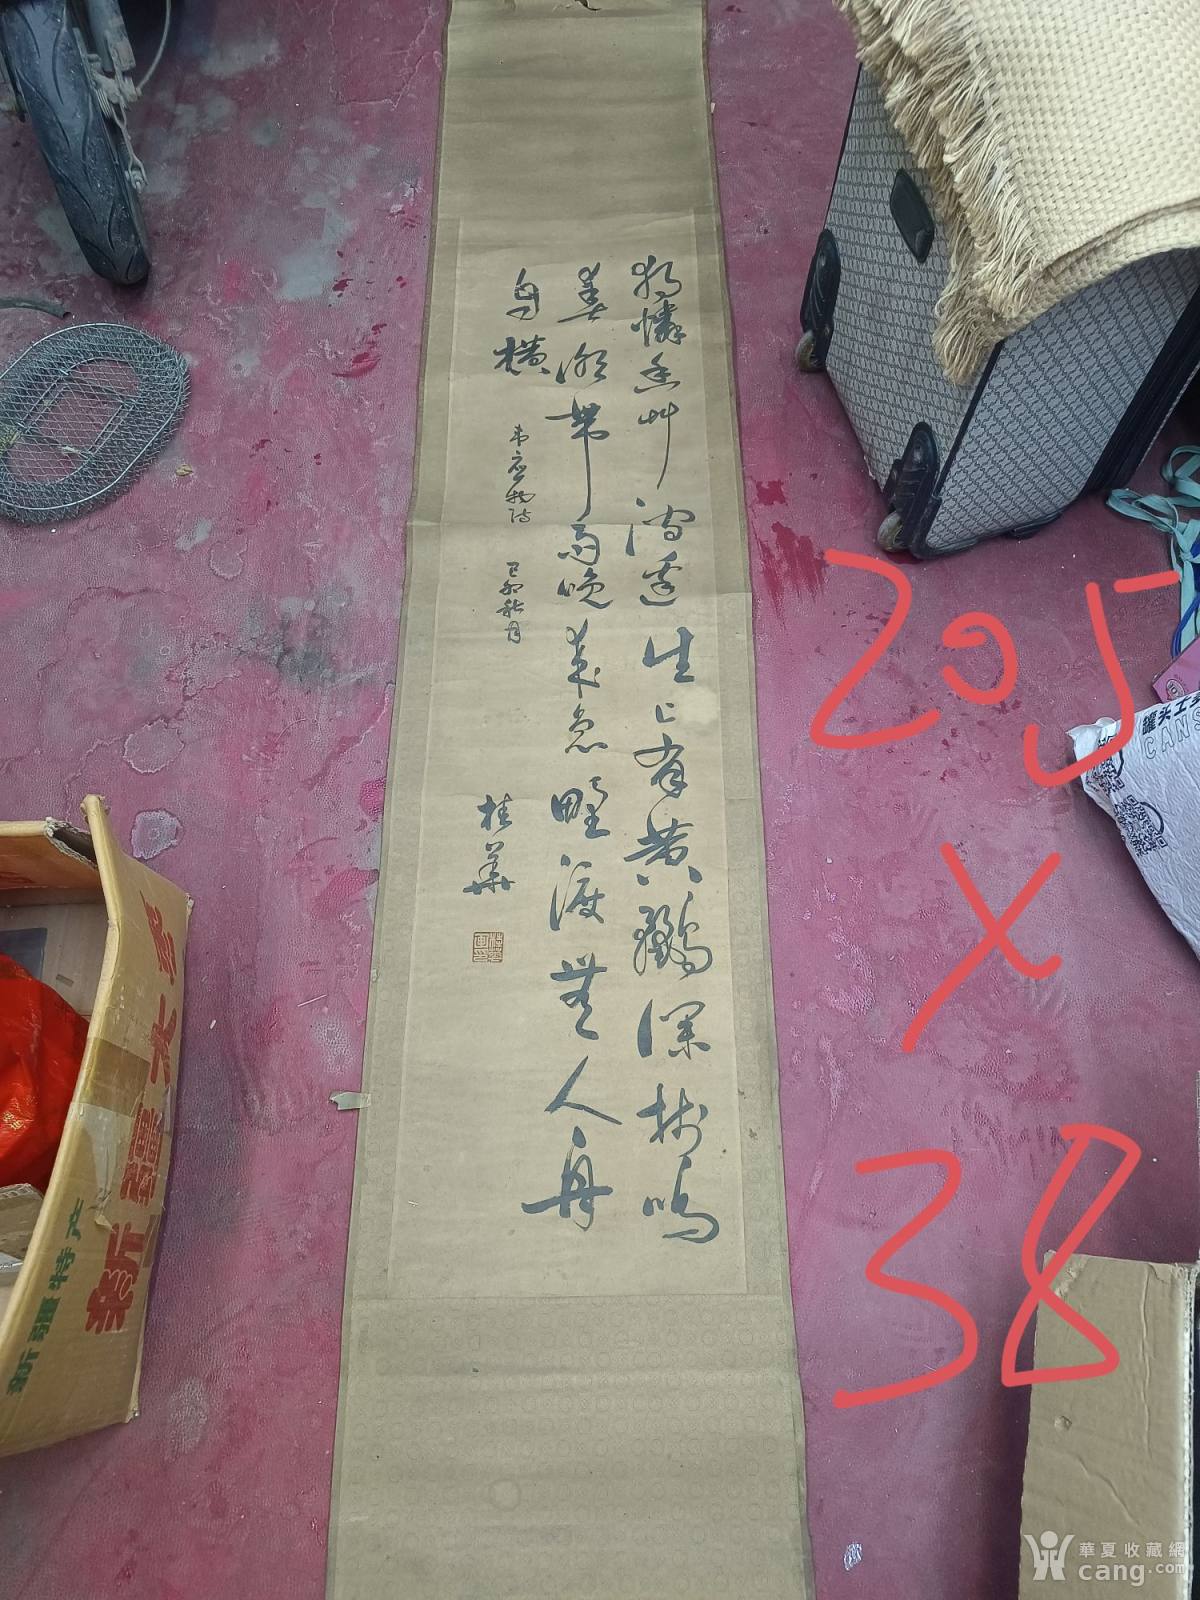 独怜幽艸澗邊生上有黄鸝深樹鳴
春潮帶雨晚来急野渡無人舟
自横
韦应物诗
己卯秋月
桂華
205
X
38
新疆特产
新疆
罐头工
CANS
華夏收藏網
cang.com